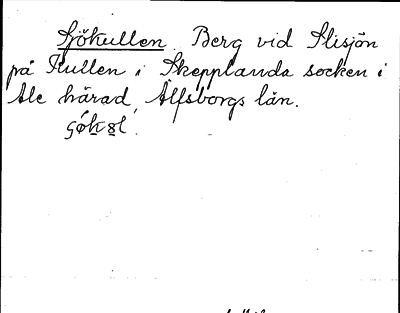 Sjökullen. Berg vid Slisjön
på Kullen i Skepplanda socken i
Ale härad, Älfsborgs län.